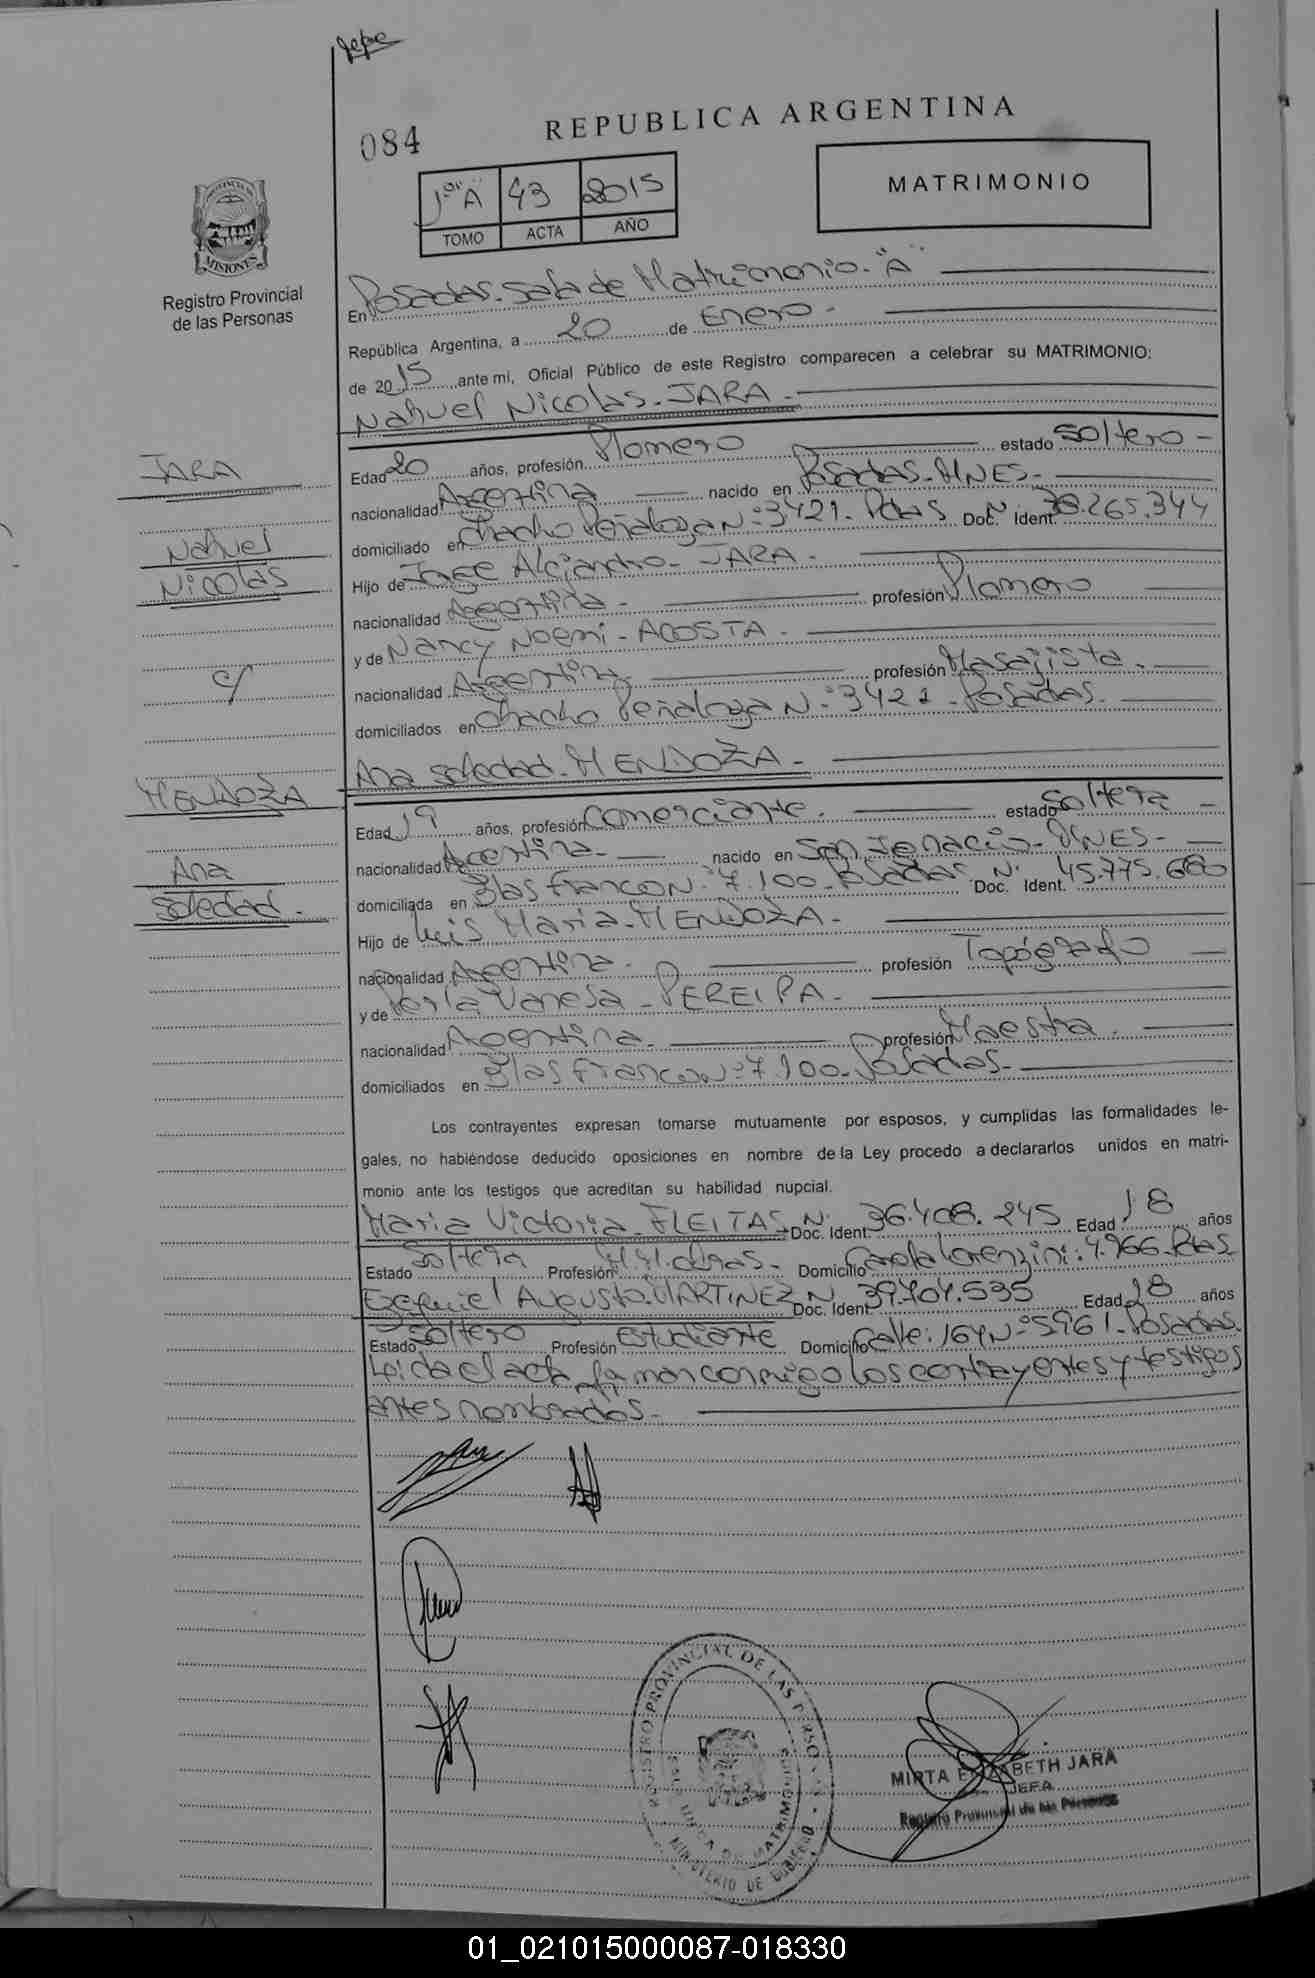 084
REPUBLICA ARGENTINA
1º "A" 43 2015
TOMO ACTA AÑO
MATRIMONIO
PROVINCIA DE
MISIONES
Registro Provincial
de las Personas
En Posadas. Sala de Matrimonio. "A"
República Argentina, a 20 de Enero -
de 2015 ante mi, Oficial Público de este Registro comparecen a celebrar su MATRIMONIO:
Nahuel Nicolas. JARA. -
JARA
Nahuel
Nicolas
c/
MENDOZA
Ana
Soledad.
Edad 20 años, profesión Plomero estado Soltero -
nacionalidad Argentina nacido en Posadas. MNES. -
domiciliado en Chacho Peñaloza Nº: 3421. Pdas Doc. Nº Ident. 38.265.344
Hijo de Jorge Alejandro. JARA.
nacionalidad Argentina - profesión Plomero
y de Nancy Noemi - ACOSTA -
nacionalidad Argentina profesión Masajista.
domiciliados en Chacho Peñaloza Nº: 3421. Posadas.
Ana Soledad. MENDOZA. -
Edad 19 años, profesión Comerciante. estado Soltera -
nacionalidad Argentina - nacido en San Ignacio - MNES -
domiciliada en Blas Franco Nº: 7.100. Posadas Nº Doc. Ident. 45.775.680
Hijo de Luis Maria. MENDOZA.
nacionalidad Argentina. profesión Topógrafo
y de Perla Vanesa - PEREIRA. -
nacionalidad Argentina. profesión Maestra.
domiciliados en Blas Franco Nº: 7.100. Posadas. -
Los contrayentes expresan tomarse mutuamente por esposos, y cumplidas las formalidades le-
gales, no habiéndose deducido oposiciones en nombre de la Ley procedo a declararlos unidos en matri-
monio ante los testigos que acreditan su habilidad nupcial.
Maria Victoria FLEITAS Nº Doc. Ident. 36.408.245 Edad 18 años
Estado Soltera Profesión Domicilio Lorenzini: 4.966. Pdas
Ezequiel Augusto. MARTINEZ Nº Doc. Ident. 39.704.535 Edad 18 años
Estado Soltero Profesión Estudiante Domicilio Calle: 164 Nº 5961. Posadas.
Leida el acta firman conmigo los contrayentes y testigos
antes nombrados. -
REGISTRO PROVINCIAL DE LAS PERSONAS
MINISTERIO DE GOBIERNO
MIRTA ELIZABETH JARA
JEFA
Registro Provincial de las Personas
01_021015000087-018330